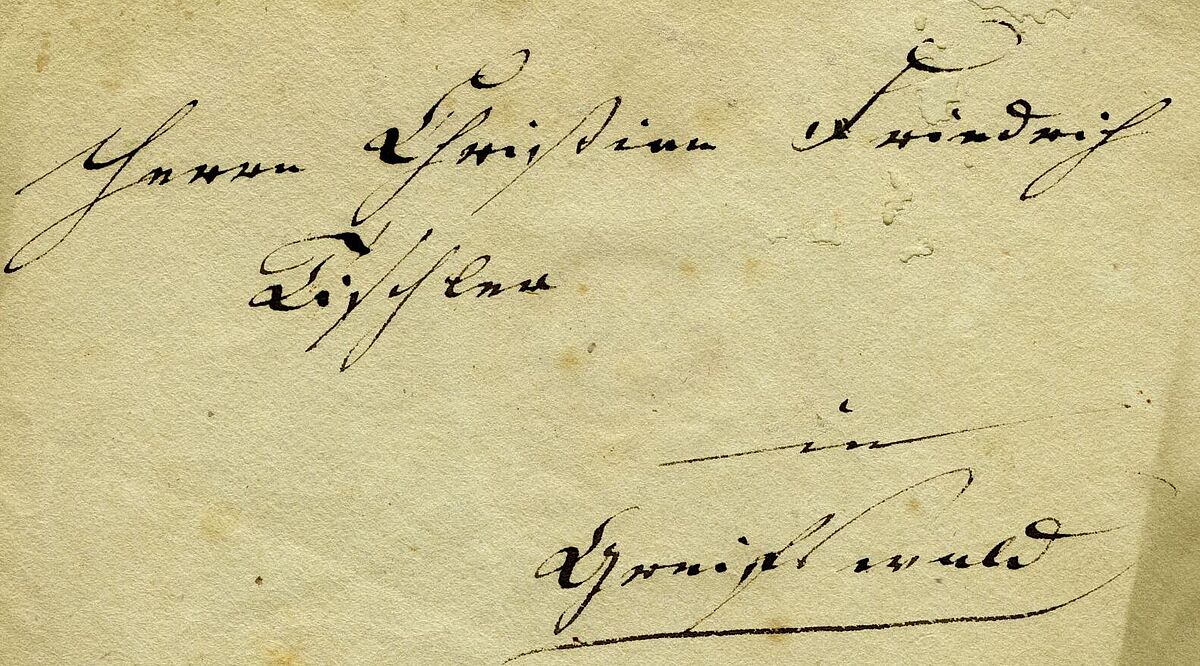 Herrn Christian Friedrich
Tischler
in
Greifswald